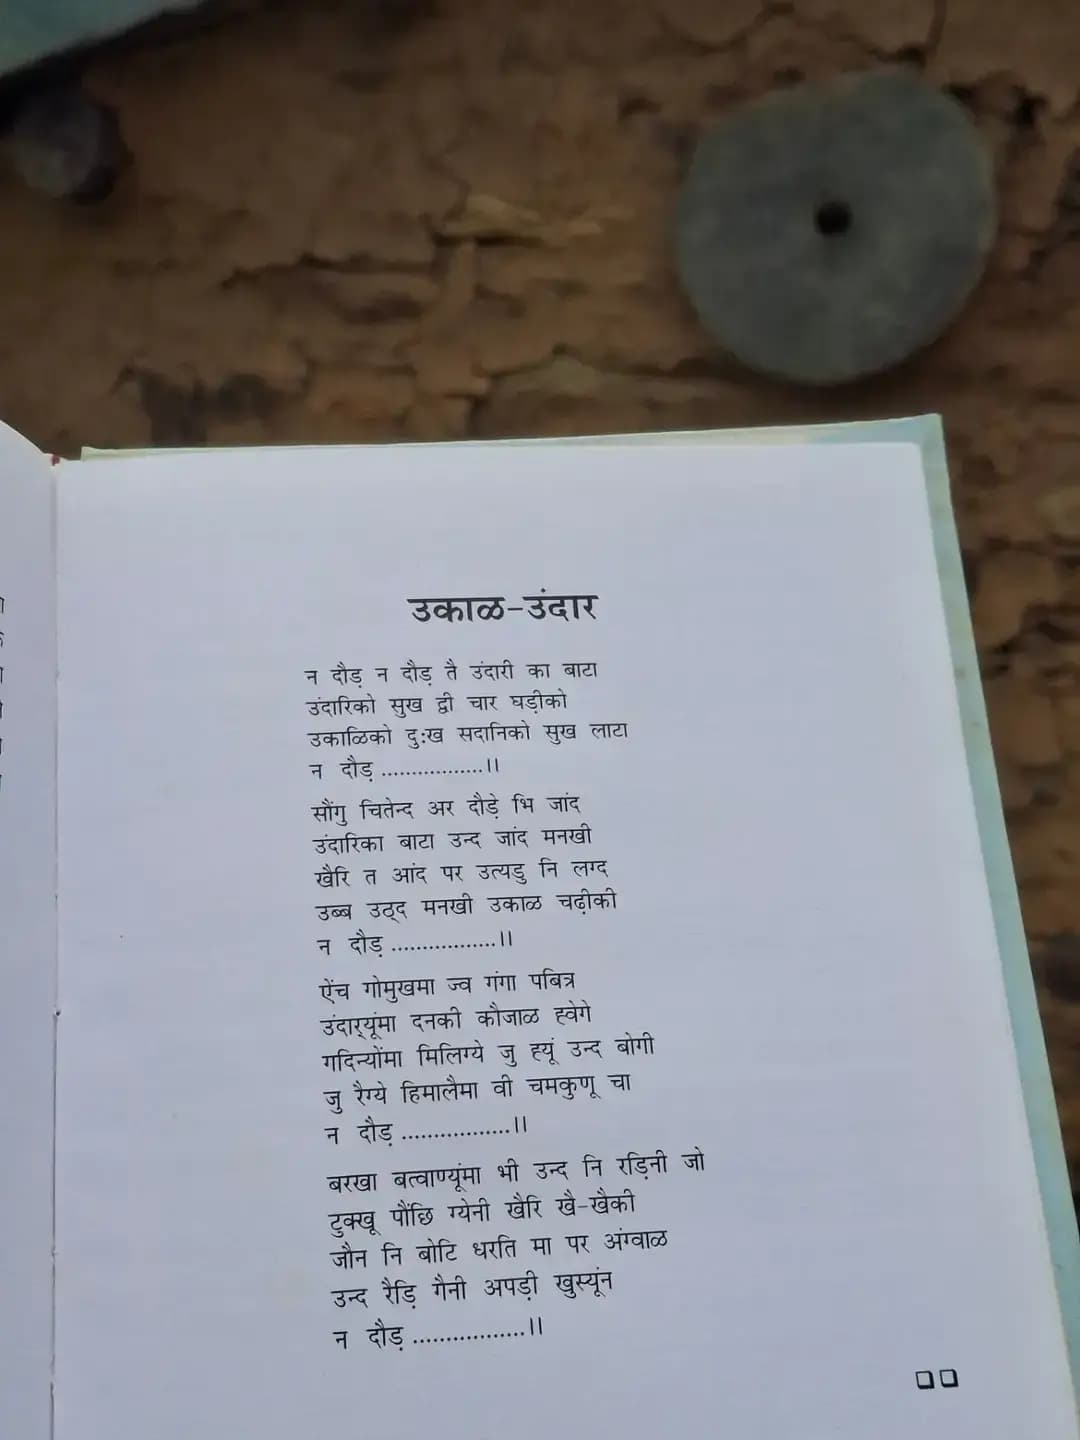 उकाळ-उंदार
न दौड़ न दौड़ तै उंदारी का बाटा
उंदारिको सुख द्वी चार घड़ीको
उकाळिको दुःख सदानिको सुख लाटा
न दौड़ ..................।।
सौंगु चितेन्द अर दौड़े भि जांद
उंदारिका बाटा उन्द जांद मनखी
खैरि त आंद पर उत्यडु नि लग्द
उब्ब उठ्द मनखी उकाळ चढ़ीकी
न दौड़ ..................।।
ऐंच गोमुखमा ज्व गंगा पबित्र
उंदार्‌यूंमा दनकी कौजाळ ह्वेगे
गदिन्योंमा मिलिग्ये जु ह्यूं उन्द बोगी
जु रैग्ये हिमालैमा वी चमकुणू चा
न दौड़ ..................।।
बरखा बत्वाण्यूंमा भी उन्द नि रड़िनी जो
टुक्खू पौंछि ग्येनी खैरि खै-खैकी
जौन नि बोटि धरति मा पर अंग्वाळ
उन्द रैड़ि गैनी अपड़ी खुस्यूंन
न दौड़ ..................।।